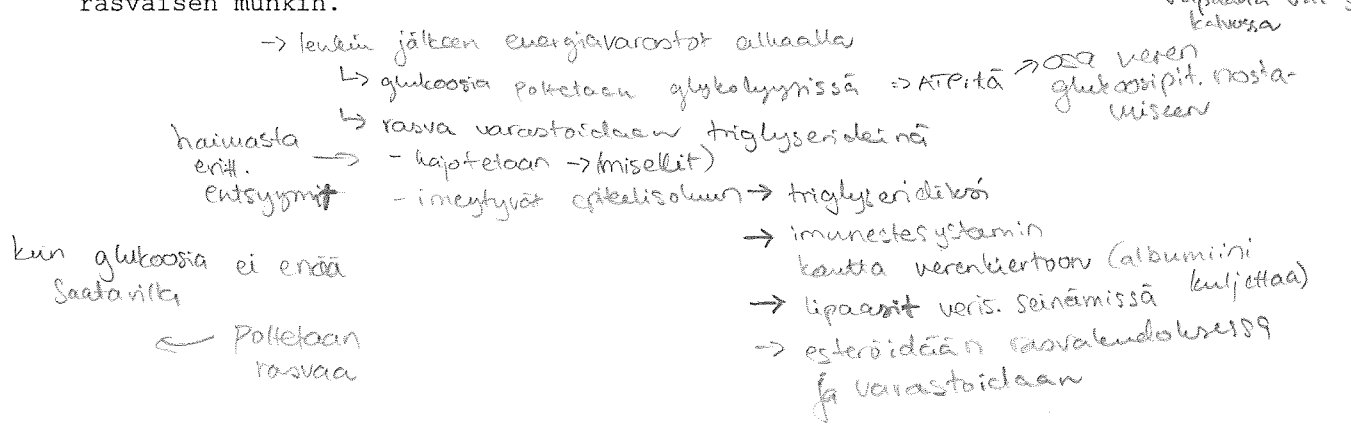 rasvaisen munkin.
kalvossa
-> lenkin jälkeen energiavarastot alhaalla
↳ glukoosia poltetaan glykolyysissä => ATP:tä
-> osa veren
glukoosipit. nosta-
miseen
↳ rasva varastoidaan triglyserideinä
haimasta
eritt.
entsyymit
-> - hajotetaan -> (misellit)
- imeytyvät epiteelisoluun -> triglyserideiksi
-> imunestesystemin
kautta verenkiertoon (albumiini
kuljettaa)
-> lipaasit veris. seinämissä
-> esteröidään rasvakudoksessa
ja varastoidaan
kun glukoosia ei enää
saatavilla
<- Poltetaan
rasvaa